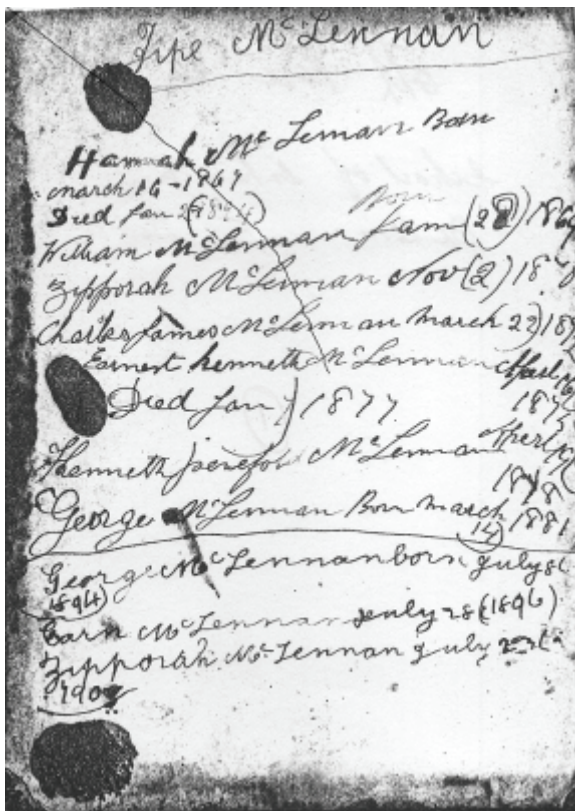 Zipe McLennan
Hannah McLennan Born
March 16 - 1867
Died Jan 2 (1894)
Born
William McLennan Jan (28) 186
Zipporah McLennan Nov (2) 187
Charles James McLennan March 22) 187
Earnest Kenneth McLennan April
Died Jan 1877 187
Kenneth McLennan April
1878
George McLennan Born March 1881
14)
George McLennan born July 8
1894)
Earn McLennan July 28 (1896)
Zipporah McLennan July
190